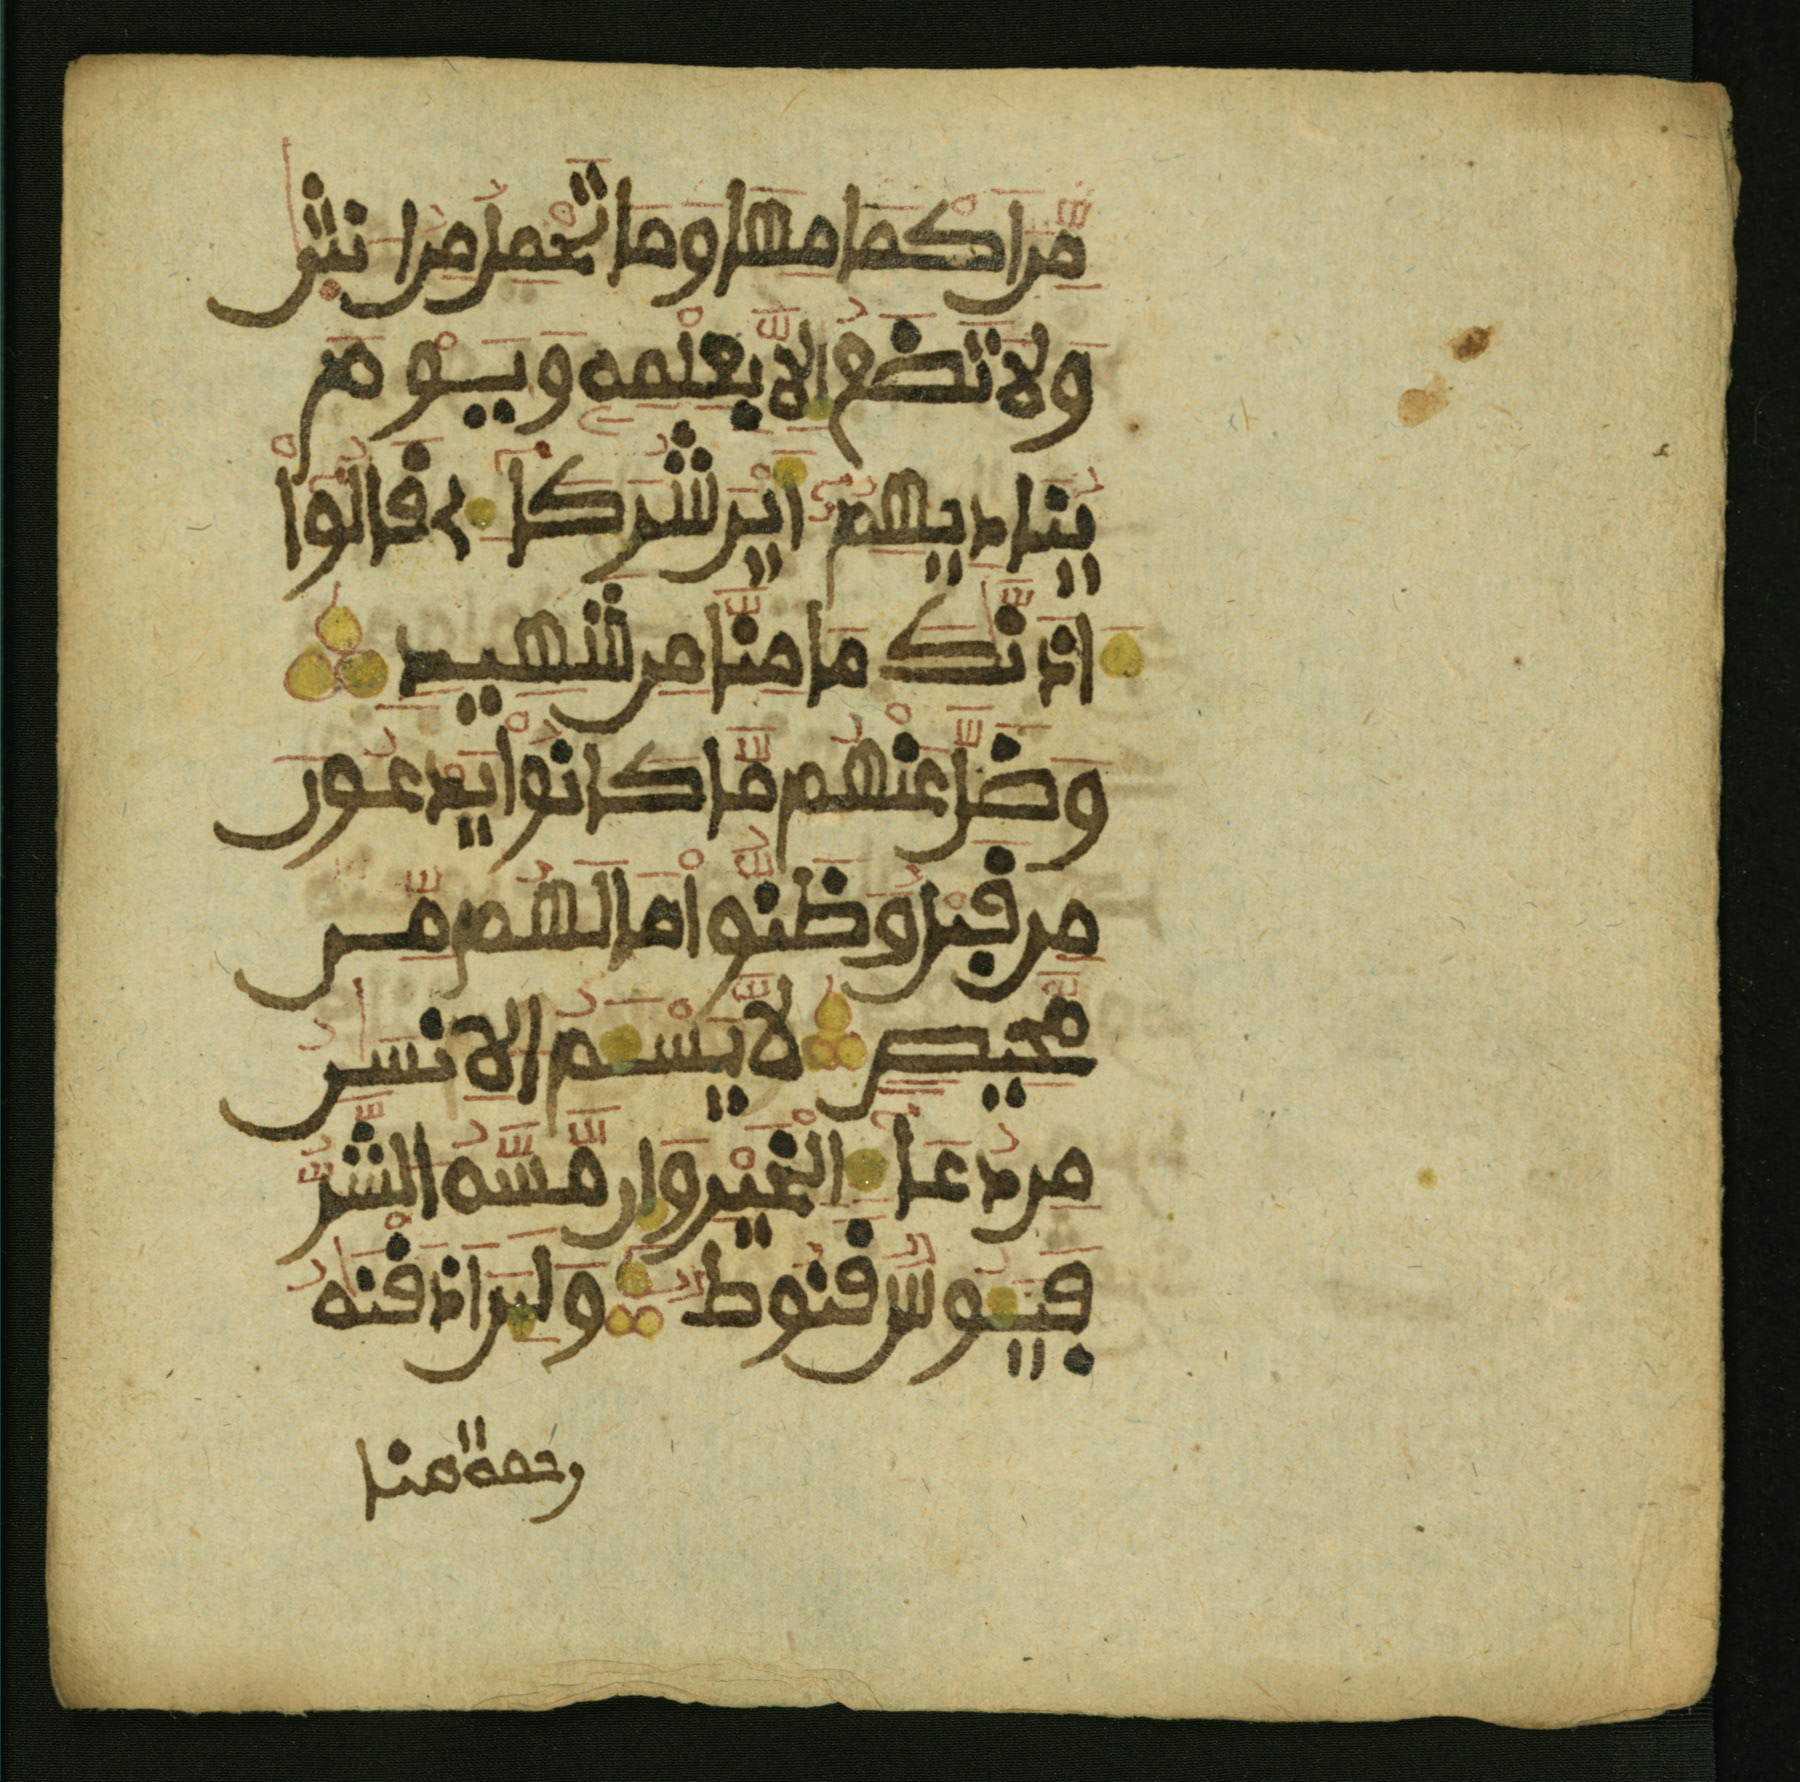 مِّنَ اَكْمَامِهَا وَمَا تَحْمِلُ مِنُ انثىٰ
وَلَا تَضَعُ إِلَّا بِعِلْمِهِ وَيَوْمَ
يُنَادِيهِمُ أَيْنَ شُرَكَاءِي قَالُوا
ءَاذَنَّٰكَ مَا مِنَّا مِن شَهِيدٍ
وَضَلَّ عَنْهُم مَّا كَانُوا يَدْعُونَ
مِن قَبْلُ وَظَنُّوا مَا لَهُم مِّن
مَّحِيصٍ لَّا يَسْـَٔمُ الِانسَٰنُ
مِن دُعَاءِ الْخَيْرِ وَإِن مَّسَّهُ الشَّرُّ
فَيَـُٔوسٌ قَنُوطٌ وَلَئِنَ اذَقْنَٰهُ
رحمة منا